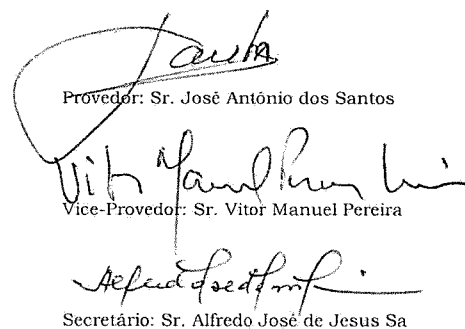 Provedor: Sr. José António dos Santos
Vitor Manuel Pereira
Vice-Provedor: Sr. Vitor Manuel Pereira
Secretário: Sr. Alfredo José de Jesus Sa